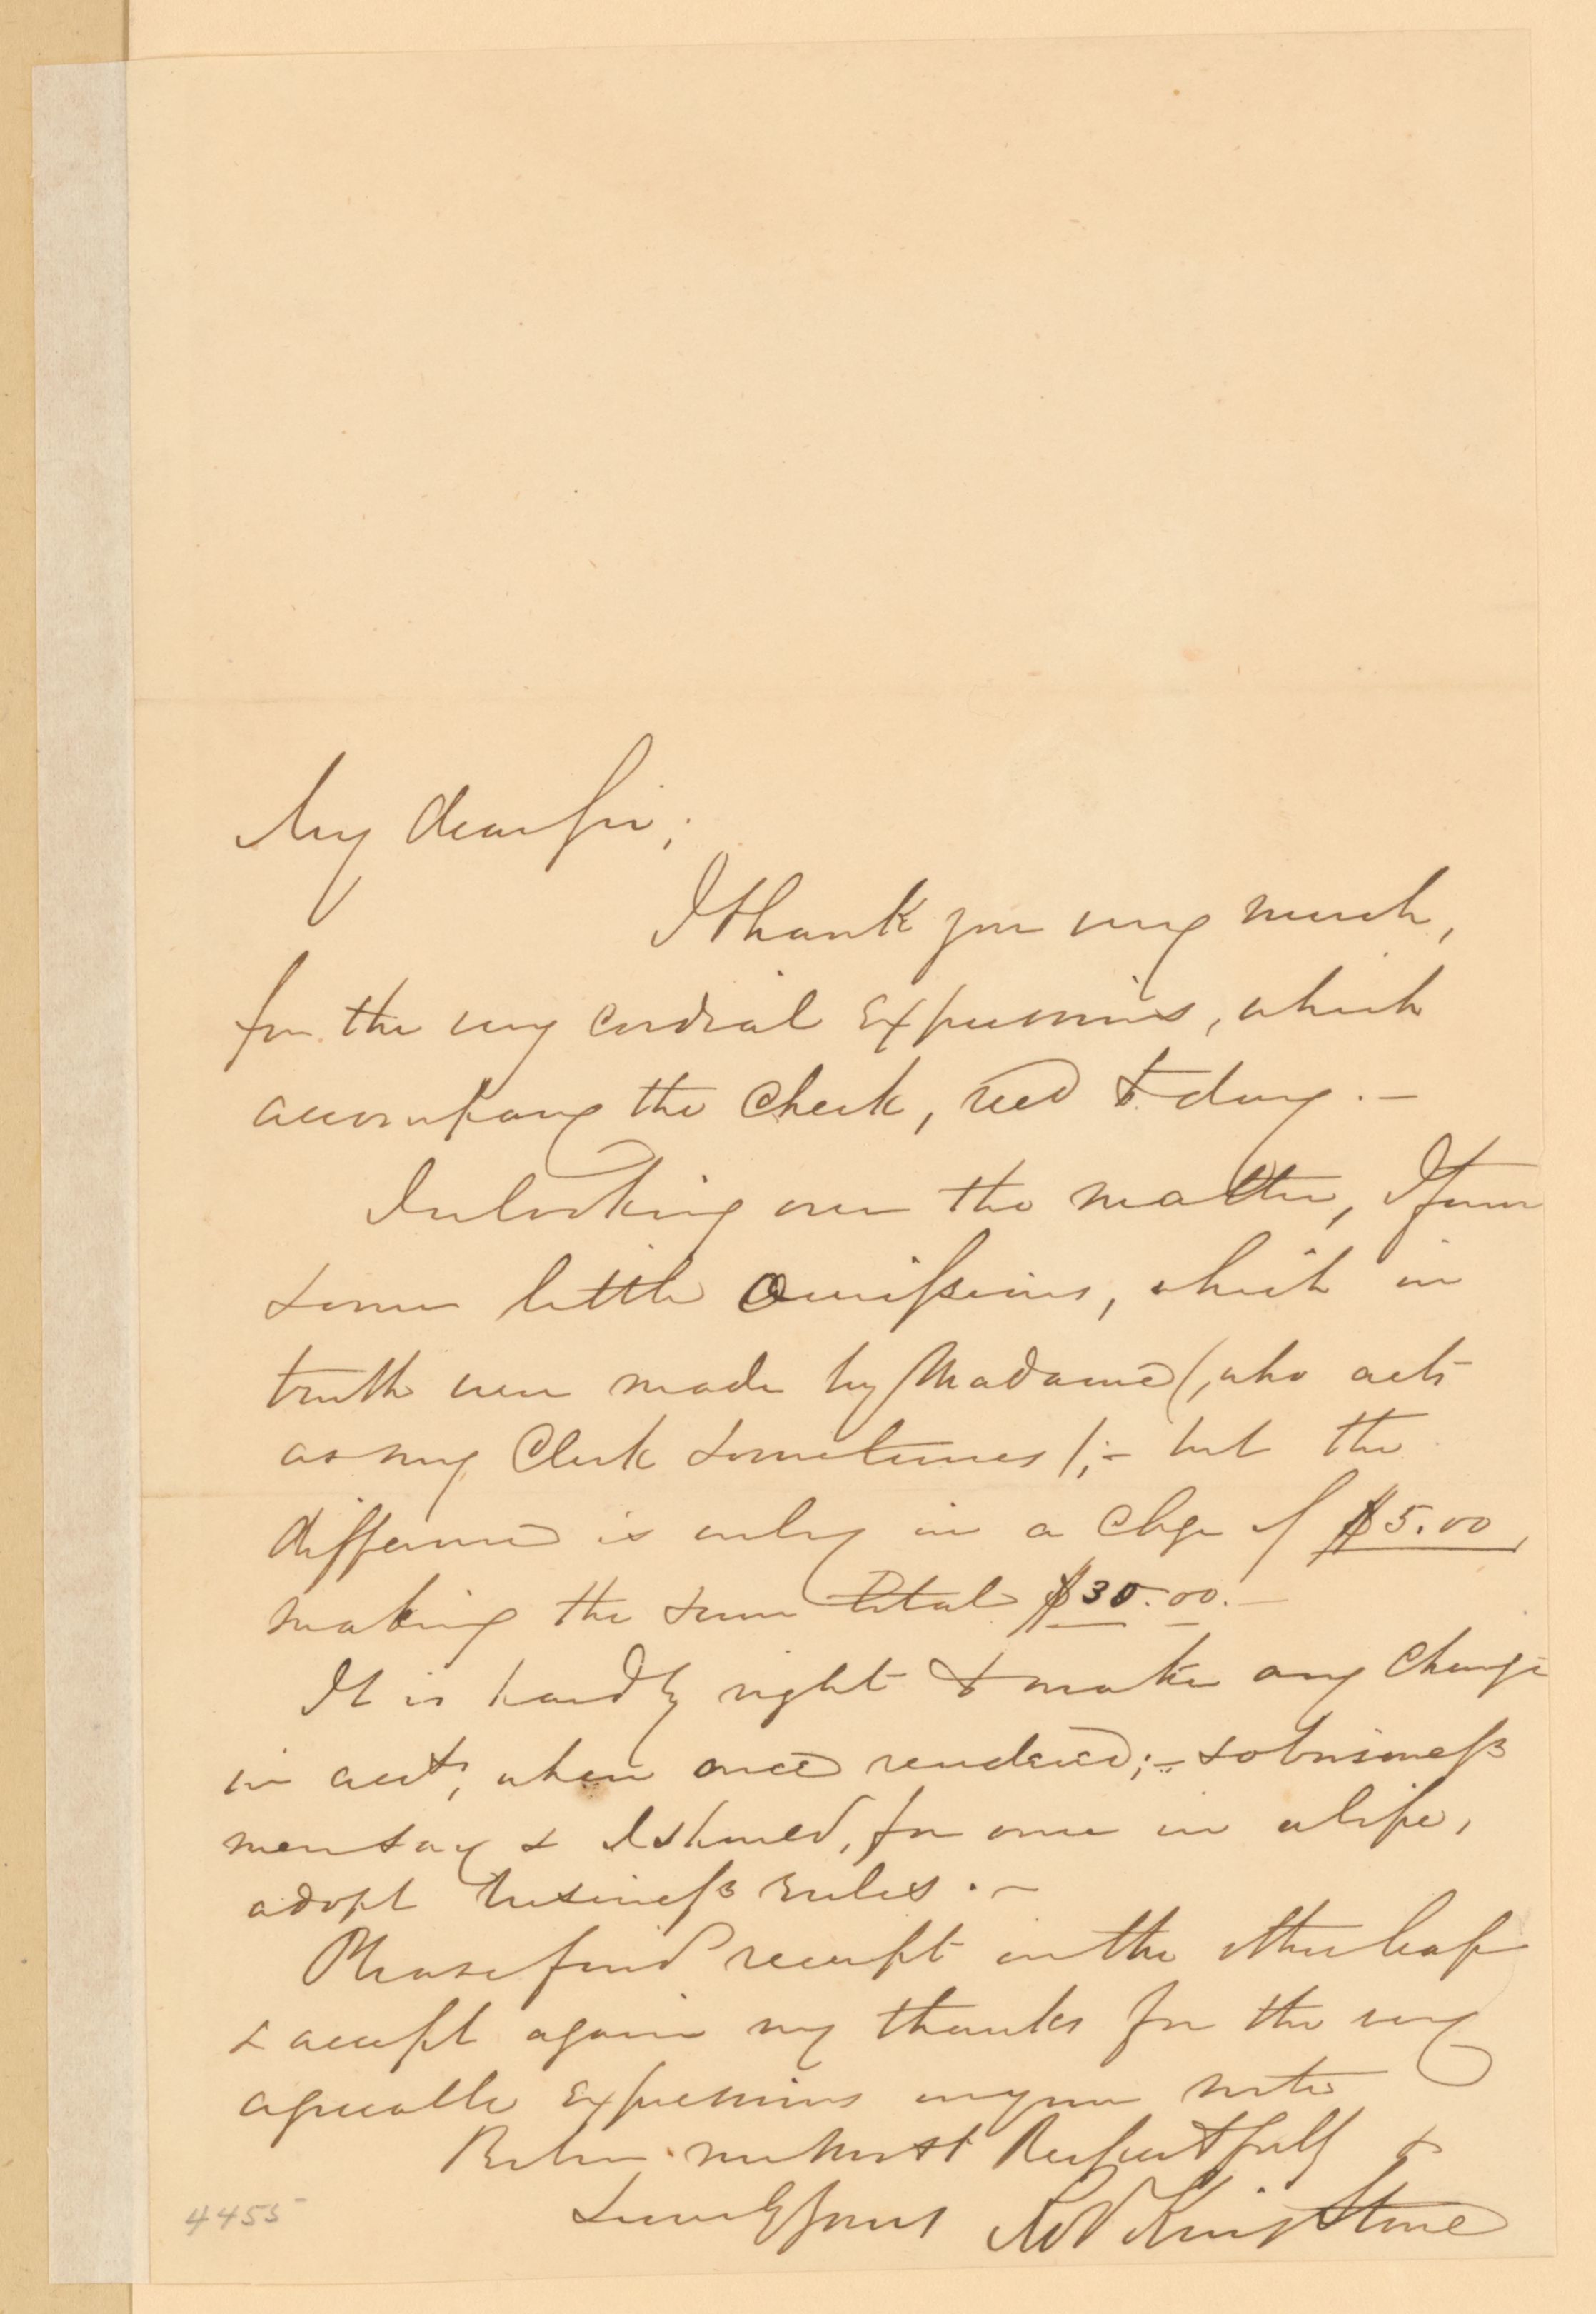 My dear Sir;
I thank you very much,
for the very cordial Expressions, which
accompany the Check, recd to day. —
In looking over the matter, I found
some little Omissions, which in
truth were made by Madame (, who acts
as my Clerk sometimes /; - but the
difference is only in a Chge of $5.00,
making the sum total $30.00. —
It is hardly right to make any Change
in acct, when once rendered; - so business
men say & I should, for once in a life,
adopt business rules. —
Please find receipt on the other leaf
& accept again my thanks for the very
agreeable Expressions in your note
Believe me most Respectfully &
Sincerely yours R King Stone
4455